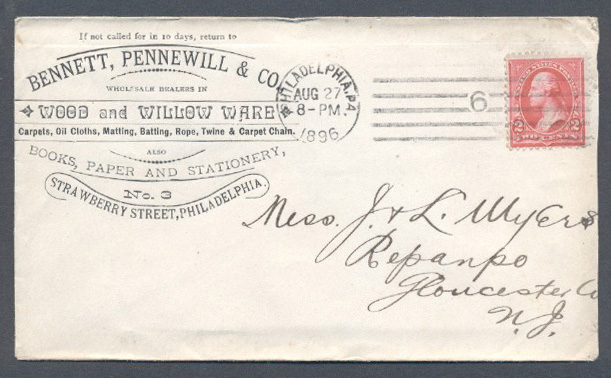 If not called for in 10 days, return to
BENNETT, PENNEWILL & CO.
WHOLESALE DEALERS IN
WOOD and WILLOW WARE
Carpets, Oil Cloths, Matting, Batting, Rope, Twine & Carpet Chain.
ALSO
BOOKS, PAPER AND STATIONERY,
No. 3
STRAWBERRY STREET, PHILADELPHIA.
PHILADELPHIA, PA
AUG 27
8-PM.
1896
6
2 2
TWO CENTS
Mess. J. & L. Myers
Repanpo
Gloucester Co
N.J.